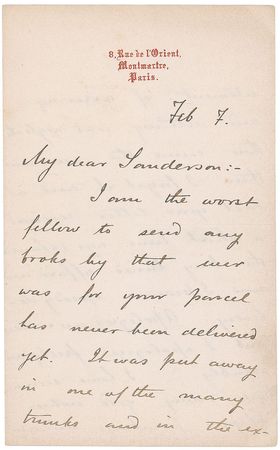 8, Rue de l'Orient,
Montmartre,
Paris.
Feb 7.
My dear Sanderson:-
I am the worst
fellow to send any
books by that ever
was for your parcel
has never been delivered
yet. It was put away
in one of the many
trunks and in the ex-